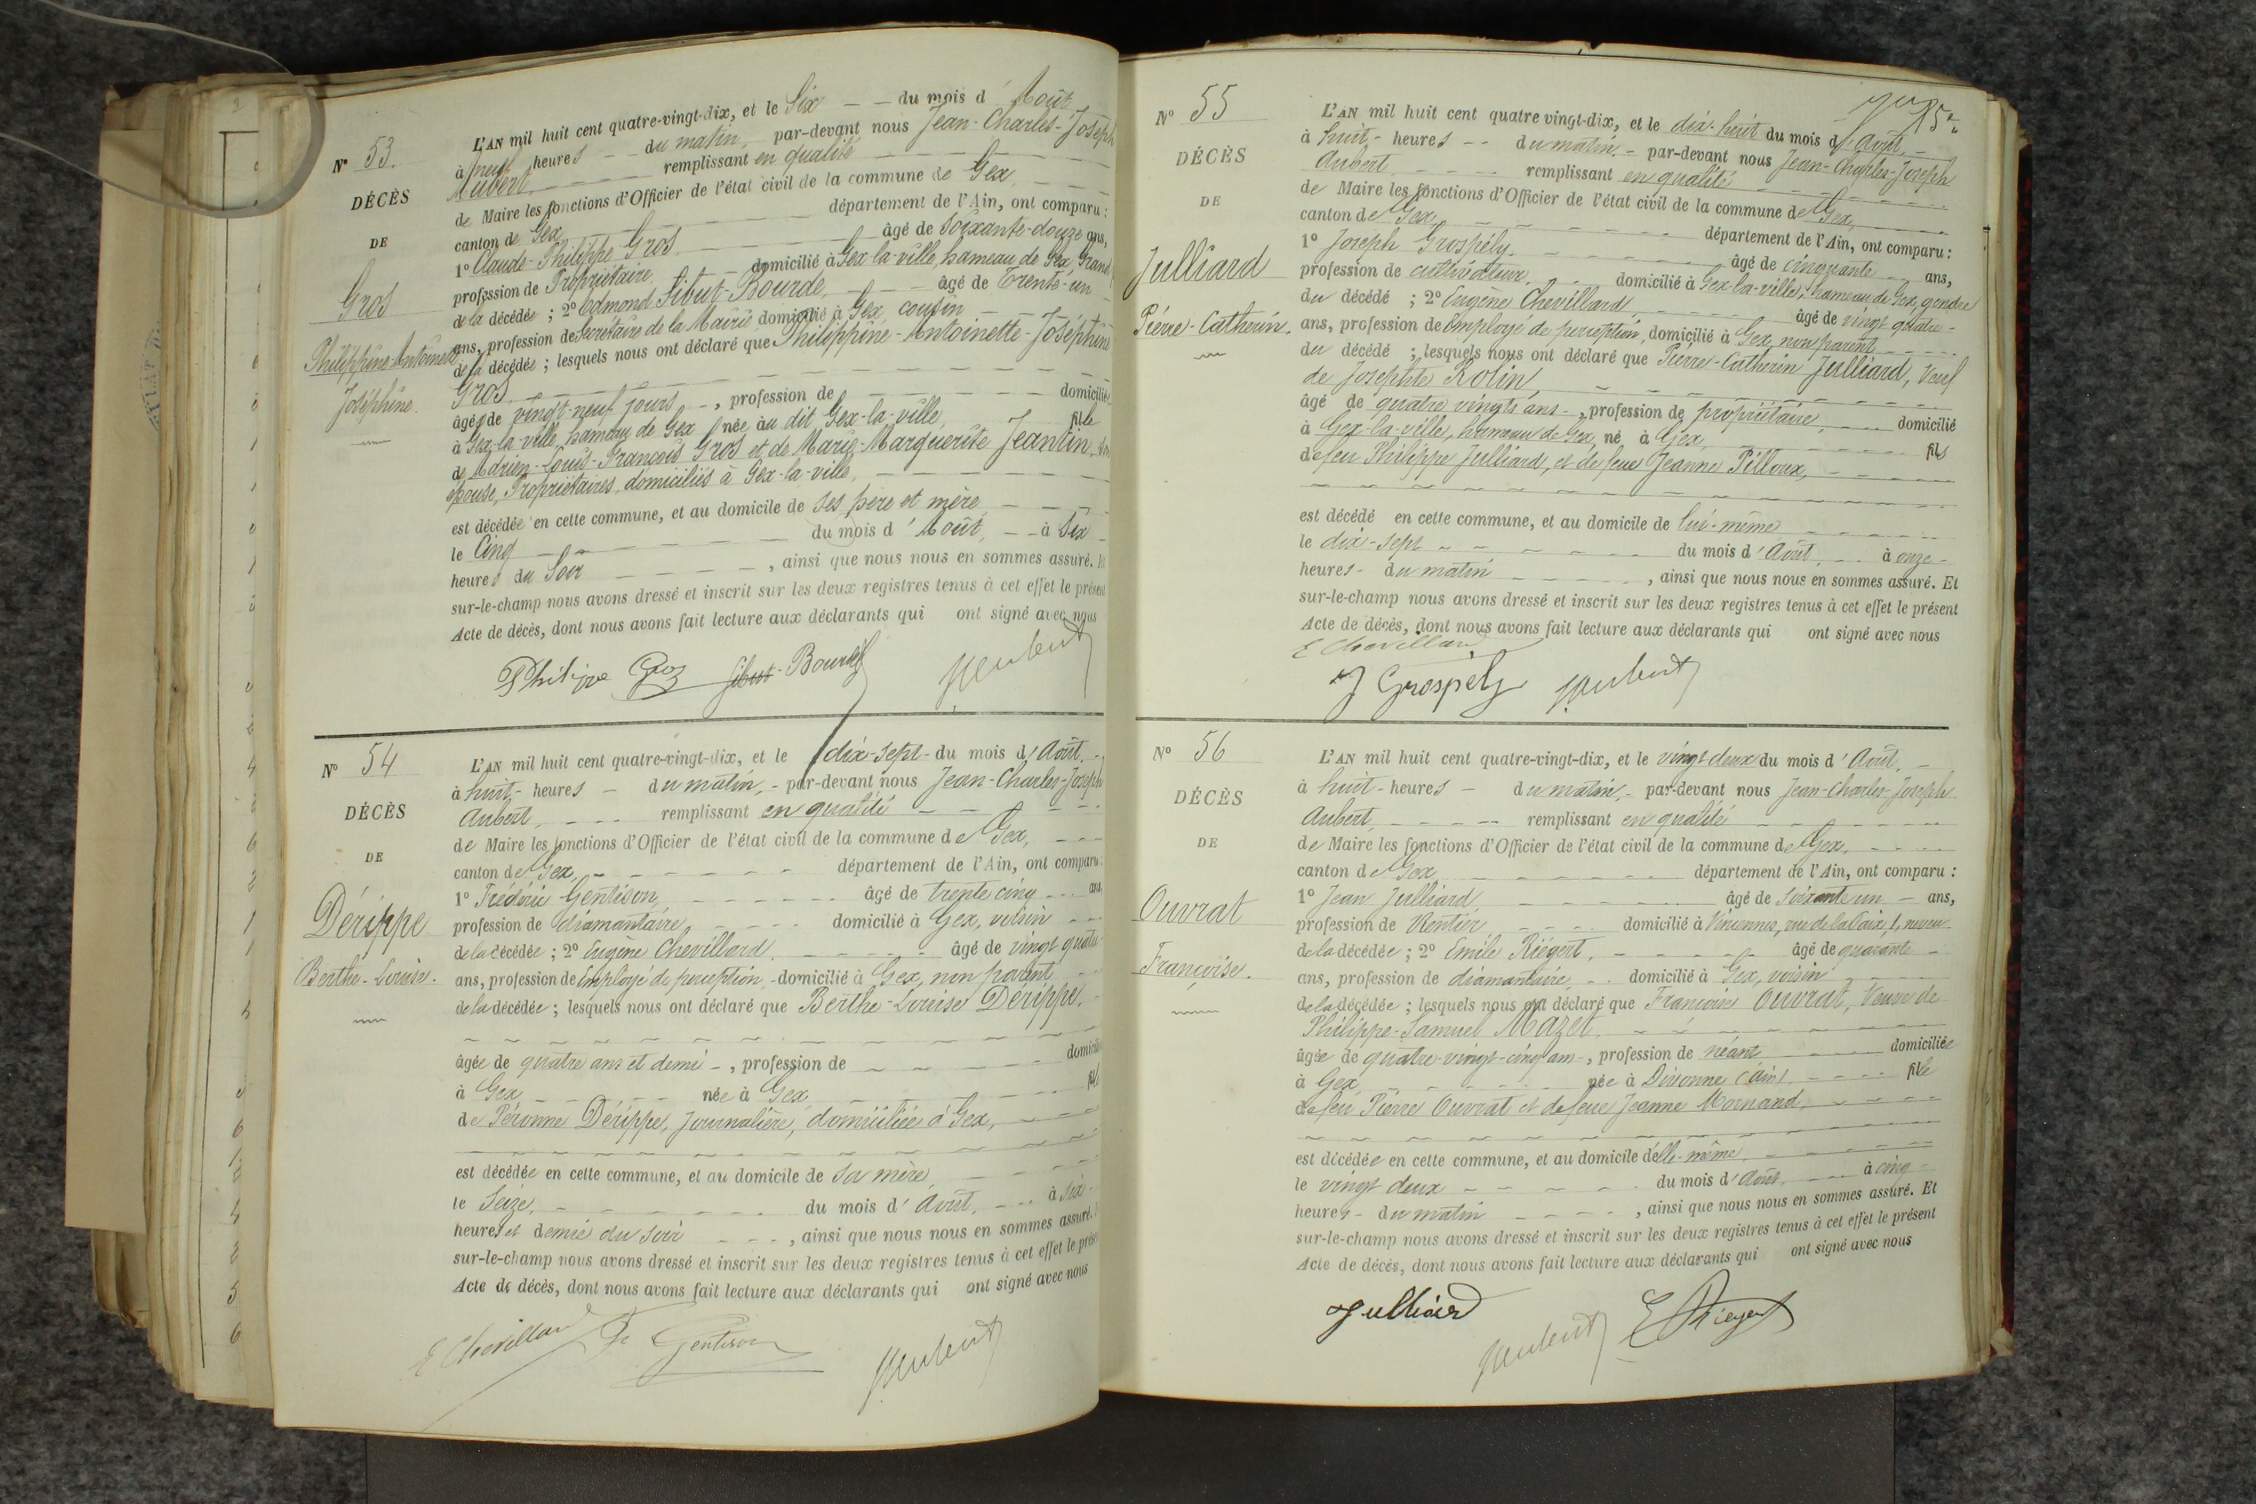 N° 53.
DÉCÈS
DE
Gros
Philippine-Antoinette
Joséphine.
L'AN mil huit cent quatre-vingt-dix, et le Six — — du mois d'Août
à neuf heures — — du matin, par-devant nous Jean-Charles-Joseph
Aubert — — — remplissant en qualité
de Maire les fonctions d'Officier de l'état civil de la commune de Gex
canton de Gex — — — département de l'Ain, ont comparu :
1° Claude-Philippe Gros — — — âgé de Soixante-douze ans,
profession de Propriétaire — domicilié à Gex-la-ville, hameau de Gex, Grand
de la décédée ; 2° Edmond Sibut-Bourde, — — — âgé de Trente-un
ans, profession de Secrétaire de la Mairie domicilié à Gex, cousin
de la décédée ; lesquels nous ont déclaré que Philippine-Antoinette-Joséphine
Gros — — —
âgée de vingt-neuf jours —, profession de — — — domiciliée
à Gex-la-ville, hameau de Gex née au dit Gex-la-ville, fille
de Adrien-Louis-François Gros et de Marie-Marguerite Jeantin, son
épouse, Propriétaires, domiciliés à Gex-la-ville, — — —
est décédée en cette commune, et au domicile de ses père et mère
le Cinq — — — du mois d'Août, — — à Six
heures du Soir — — —, ainsi que nous nous en sommes assuré. Et
sur-le-champ nous avons dressé et inscrit sur les deux registres tenus à cet effet le présent
Acte de décès, dont nous avons fait lecture aux déclarants qui ont signé avec nous
Philippe Gros Sibut-Bourde JAubert
N° 54
DÉCÈS
DE
Dérippe
Berthe-Louise.
L'AN mil huit cent quatre-vingt-dix, et le dix-sept du mois d'Août. —
à huit heures — du matin, — par-devant nous Jean-Charles-Joseph
Aubert, — — — remplissant en qualité — — —
de Maire les fonctions d'Officier de l'état civil de la commune de Gex, — — —
canton de Gex, — — — département de l'Ain, ont comparu :
1° Frédéric Gentison, — — — âgé de trente cinq — — ans
profession de diamantaire — — — domicilié à Gex, voisin — — —
de la décédée ; 2° Eugène Chevillard, — — — âgé de vingt quatre
ans, profession de Employé de perception, — domicilié à Gex, non parent
de la décédée ; lesquels nous ont déclaré que Berthe-Louise Dérippe, —
âgée de quatre ans et demi —, profession de — — — domiciliée
à Gex — — — née à Gex — — — fille
de Péronne Dérippe, journalière, domiciliée à Gex, — — —
est décédée en cette commune, et au domicile de sa mère, — — —
le Seize, — — — du mois d'Août, — — à six —
heures et demie du soir — — —, ainsi que nous nous en sommes assuré. Et
sur-le-champ nous avons dressé et inscrit sur les deux registres tenus à cet effet le présent
Acte de décès, dont nous avons fait lecture aux déclarants qui ont signé avec nous
E Chevillard Fr Gentison JAubert
N° 55
DÉCÈS
DE
Julliard
Pierre-Catherin.
L'AN mil huit cent quatre vingt-dix, et le dix-huit du mois d'Août, —
à huit — heures — — du matin, — par-devant nous Jean-Charles-Joseph
Aubert — — — remplissant en qualité — — —
de Maire les fonctions d'Officier de l'état civil de la commune de Gex,
canton de Gex, — — — département de l'Ain, ont comparu :
1° Joseph Grospély. — — — âgé de cinquante — ans,
profession de cultivateur, — — domicilié à Gex-la-ville, hameau de Gex, gendre
du décédé ; 2° Eugène Chevillard, — — — âgé de vingt quatre —
ans, profession de Employé de perception, domicilié à Gex, non parent — — —
du décédé ; lesquels nous ont déclaré que Pierre-Catherin Julliard, Veuf
de Josephte Rolin — — —
âgé de quatre vingts ans —, profession de propriétaire, — — — domicilié
à Gex-la-ville, hameau de Gex, né à Gex — — — fils
de feu Philippe Julliard, et de feue Jeanne Pilloux, — — —
est décédé en cette commune, et au domicile de lui-même — — —
le dix-sept — — — du mois d'Août, — — à onze —
heures — du matin — — —, ainsi que nous nous en sommes assuré. Et
sur-le-champ nous avons dressé et inscrit sur les deux registres tenus à cet effet le présent
Acte de décès, dont nous avons fait lecture aux déclarants qui ont signé avec nous
E Chevillard
J Grospély JAubert
N° 56
DÉCÈS
DE
Ouvrat
Françoise.
L'AN mil huit cent quatre-vingt-dix, et le vingt deux du mois d'Août. —
à huit — heures — du matin, — par-devant nous Jean-Charles-Joseph
Aubert, — — — remplissant en qualité — — —
de Maire les fonctions d'Officier de l'état civil de la commune de Gex, — — —
canton de Gex — — — département de l'Ain, ont comparu :
1° Jean Julliard, — — — âgé de soixante un — ans,
profession de Rentier — — — domicilié à Vincennes, rue de la Paix, 1, neveu
de la décédée ; 2° Emile Riégert, — — — âgé de quarante —
ans, profession de diamantaire, — — domicilié à Gex, voisin
de la décédée ; lesquels nous ont déclaré que Françoise Ouvrat, Veuve de
Philippe-Samuel Mazet — — —
âgée de quatre-vingt-cinq ans —, profession de néant — — — domiciliée
à Gex — — — née à Divonne (Ain) — — — fille
de feu Pierre Ouvrat et de feue Jeanne Mornand, — — —
est décédée en cette commune, et au domicile d'elle-même — — —
le vingt deux — — — du mois d'Août, — — à cinq —
heures — du matin — — —, ainsi que nous nous en sommes assuré. Et
sur-le-champ nous avons dressé et inscrit sur les deux registres tenus à cet effet le présent
Acte de décès, dont nous avons fait lecture aux déclarants qui ont signé avec nous
Julliard JAubert E Riegert